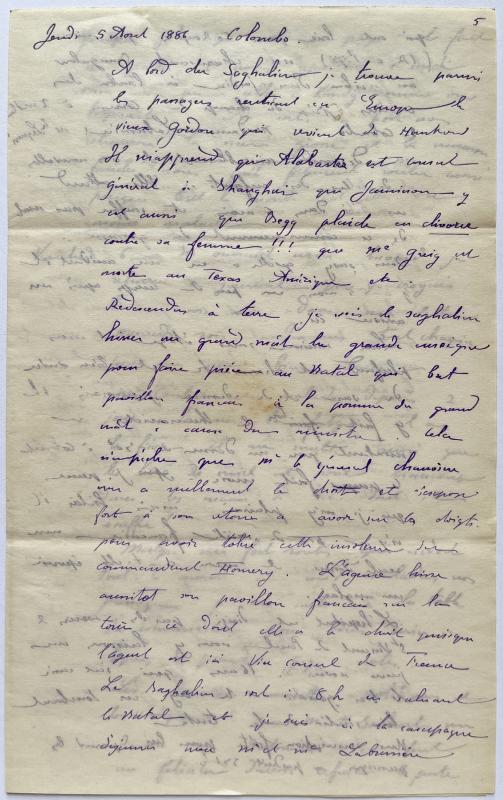 5
Jeudi 5 Aout 1886 Colombo.
A bord du Saghalien je trouve parmi
les passagers rentrant en Europe le
vieux Gordon qui revient de Hankow
Il m'apprend qu'Alabaster est consul
général à Shanghai que Jamieson y
est aussi que Begg plaide en divorce
contre sa femme !!! que Mc Greig est
morte au Texas Amérique etc.
Redescendus à terre je vois le Saghalien
hisser au grand mât la grande enseigne
pour faire pièce au Natal qui bat
pavillon français à la pomme du grand
mât à cause du ministre. Cela
n'empêche que ni le général Chanoine
n'en a nullement le droit et s'expose
fort à son retour à avoir sur les doigts
pour avoir toléré cette insolence du
commandant Homery. L'agence hisse
aussitot son pavillon français sur la
tour ce dont elle a le droit puisque
l'agent est ici Vice consul de France
Le Saghalien sort à 8h en saluant
le Natal et je vais à la campagne
déjeuner avec Mr et Mme Labussière